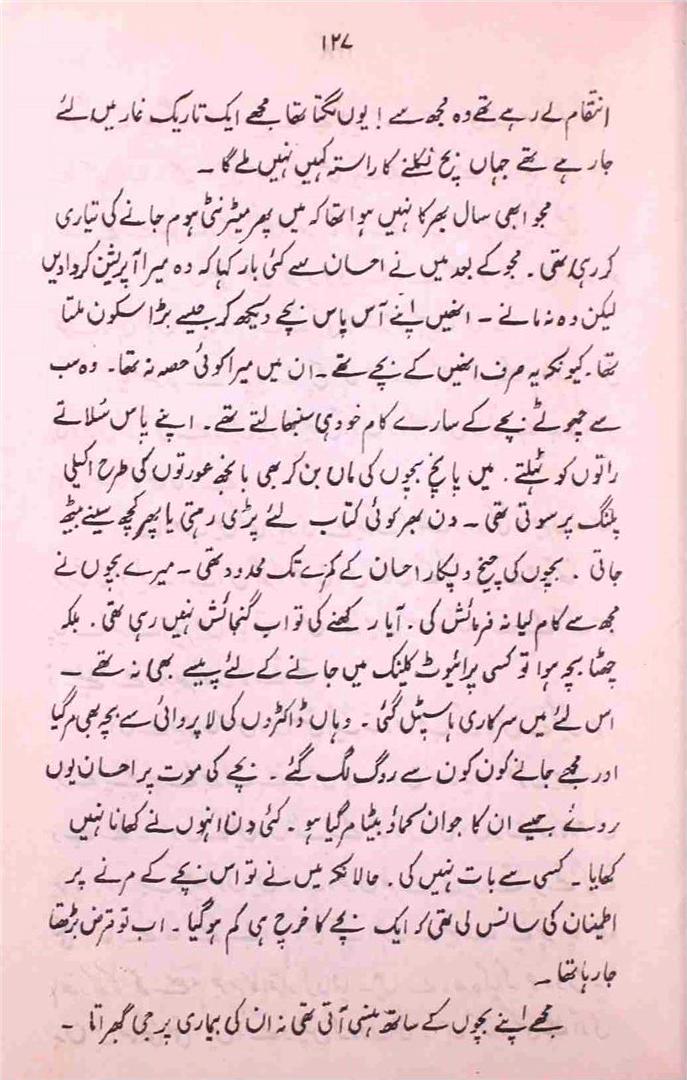 ۱۲۷
انتقام لے رہے تھے وہ مجھ سے! یوں لگتا تھا مجھے ایک تاریک غار میں لئے
جا رہے تھے جہاں بچ نکلنے کا راستہ کہیں نہیں ملے گا ۔
مجو ابھی سال بھر کا نہیں ہوا تھا کہ میں پھر میٹرنٹی ہوم جانے کی تیاری
کر رہی تھی ۔ مجو کے بعد میں نے احسان سے کئی بار کہا کہ وہ میرا آپریشن کروا دیں
لیکن وہ نہ مانے ۔ انھیں اپنے آس پاس بچے دیکھ کر جیسے بڑا سکون ملتا
تھا ۔ کیونکہ یہ صرف انھیں کے بچے تھے ۔ ان میں میرا کوئی حصہ نہ تھا ۔ وہ سب
سے چھوٹے بچے کے سارے کام خود ہی سنبھالتے تھے ۔ اپنے پاس سُلاتے
راتوں کو ٹہلتے ۔ میں پانچ بچوں کی ماں بن کر بھی بانجھ عورتوں کی طرح اکیلی
پلنگ پر سوتی تھی ۔ دن بھر کوئی کتاب لئے پڑی رہتی یا پھر کچھ سینے بیٹھ
جاتی ۔ بچوں کی چیخ و پکار احسان کے کمرے تک محدود تھی ۔ میرے بچوں نے
مجھ سے کام لیا نہ فرمائش کی ۔ آیا رکھنے کی تو اب گنجائش نہیں رہی تھی ۔ بلکہ
چھٹا بچہ ہوا تو کسی پرائیوٹ کلنک میں جانے کے لئے پیسے بھی نہ تھے ۔
اس لئے میں سرکاری ہاسپٹل گئی ۔ وہاں ڈاکٹروں کی لاپروائی سے بچہ بھی مر گیا
اور مجھے جانے کون کون سے روگ لگ گئے ۔ بچے کی موت پر احسان یوں
روئے جیسے ان کا جوان کماؤ بیٹا مر گیا ہو ۔ کئی دن انہوں نے کھانا نہیں
کھایا ۔ کسی سے بات نہیں کی ۔ حالانکہ میں نے تو اس بچے کے مرنے پر
اطمینان کی سانس لی تھی کہ ایک بچے کا خرچ ہی کم ہو گیا ۔ اب تو قرض بڑھتا
جا رہا تھا ۔
مجھے اپنے بچوں کے ساتھ ہنسی آتی تھی نہ ان کی بیماری پر جی گھبراتا ۔